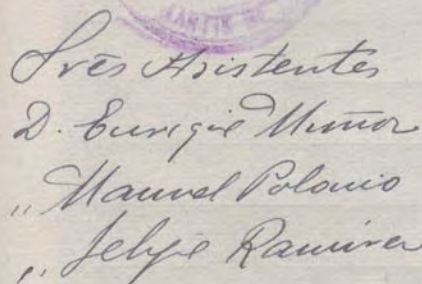 Srēs Asistentes
D. Enrique Muñoz
„ Manuel Polanio
„ Felipe Ramirez